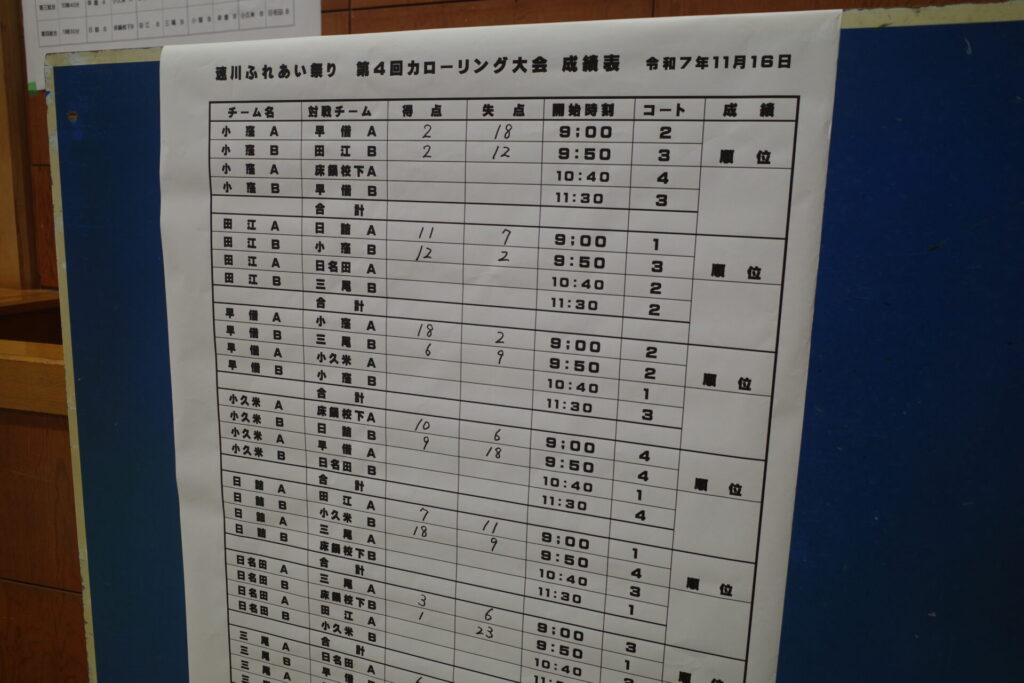 速川ふれあい祭り 第4回カローリング大会 成績表 令和7年11月16日
チーム名 対戦チーム 得点 失点 開始時刻 コート 成績
小窪 A 早借 A 2 18 9:00 2 順位
小窪 B 田江 B 2 12 9:50 3
小窪 A 床鍋桉下A 10:40 4
小窪 B 早借 B 11:30 3
合計
田江 A 日詰 A 11 7 9:00 1 順位
田江 B 小窪 B 12 2 9:50 3
田江 A 日名田 A 10:40 2
田江 B 三尾 B 11:30 2
合計
早借 A 小窪 A 18 2 9:00 2 順位
早借 B 三尾 B 6 9 9:50 2
早借 A 小久米 A 10:40 1
早借 B 小窪 B 11:30 3
合計
小久米 A 床鍋桉下A 10 6 9:00 4 順位
小久米 B 日詰 B 9 18 9:50 4
小久米 A 早借 A 10:40 1
小久米 B 日名田 B 11:30 4
合計
日詰 A 田江 A 7 11 9:00 1 順位
日詰 B 小久米 B 18 9 9:50 4
日詰 A 三尾 A 10:40 3
日詰 B 床鍋桉下B 11:30 1
合計
日名田 A 三尾 A 3 6 9:00 3 順位
日名田 B 床鍋桉下B 1 23 9:50 1
日名田 A 田江 A 10:40 2
日名田 B 小久米 B
合計
三尾 A 日名田 A
三尾 B 早借
三尾 A